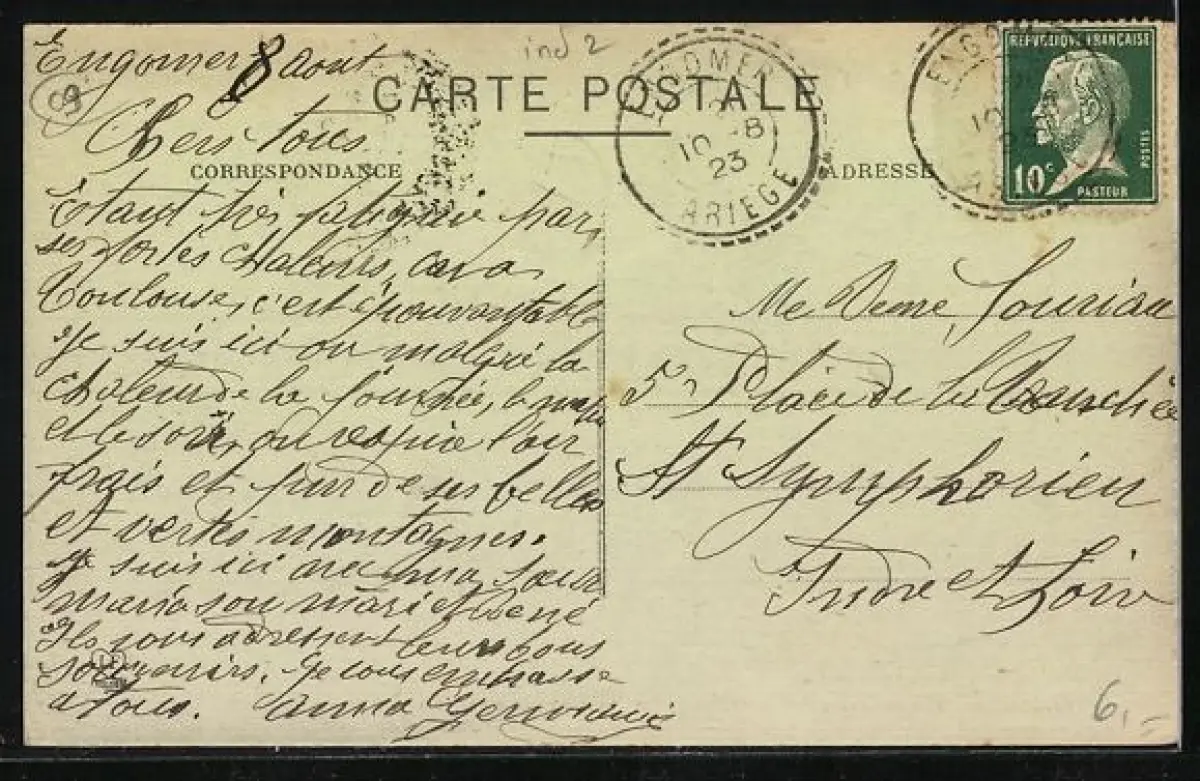 ind 2
Engomer 8 aout
CARTE POSTALE
Chers tous
CORRESPONDANCE
Etant très fatiguée par
ses fortes chaleurs, car a
Toulouse, c'est épouvantable
Je suis ici ou malgré la
chaleur de la journée, le matin
et le soir, on respire l'air
frais et pur de ses belles
et vertes montagnes.
Je suis ici avec ma soeur
Maria son mari et
Ils vous adressent leurs bons
souvenirs. Je vous embrasse
a tous. Anna
ENGOMER
10 -8
23
ARIEGE
ENGO
10
REPUBLIQUE FRANÇAISE
10c
PASTEUR
POSTES
ADRESSE
Me Deme
5, Place de la
St Symphorien
Indre et Loire
6,-